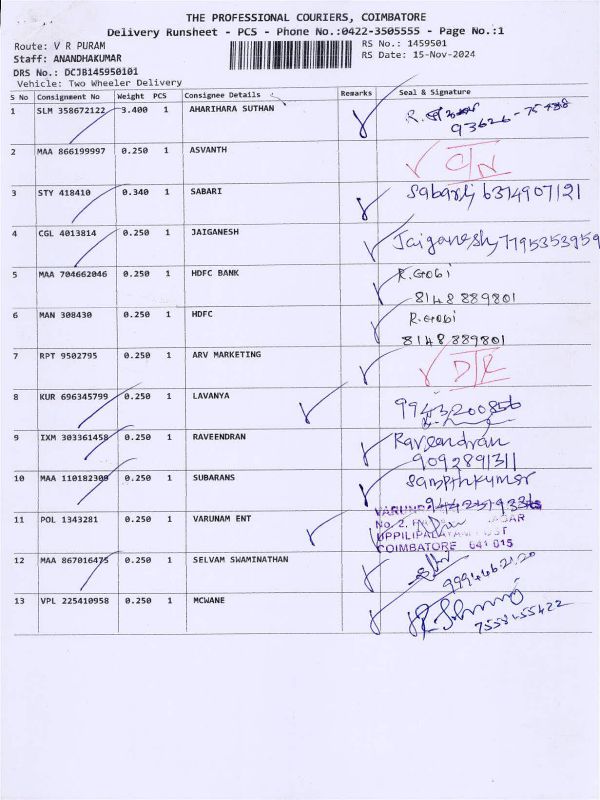 THE PROFESSIONAL COURIERS, COIMBATORE
Delivery Runsheet - PCS - Phone No.:0422-3505555 - Page No.:1
Route: V R PURAM
RS No.: 1459501
Staff: ANANDHAKUMAR
RS Date: 15-Nov-2024
DRS No.: DCJB145950101
Vehicle: Two Wheeler Delivery
S No Consignment No Weight PCS Consignee Details Remarks Seal & Signature
1 SLM 358672122 3.400 1 AHARIHARA SUTHAN R.
93626-75488
2 MAA 866199997 0.250 1 ASVANTH
3 STY 418410 0.340 1 SABARI 6374907121
4 CGL 4013814 0.250 1 JAIGANESH Jaiganesh 7795353959
5 MAA 704662046 0.250 1 HDFC BANK R.Gobi
8148889801
6 MAN 308430 0.250 1 HDFC R.Gobi
8148889801
7 RPT 9502795 0.250 1 ARV MARKETING
8 KUR 696345799 0.250 1 LAVANYA
9 IXM 303361458 0.250 1 RAVEENDRAN Raveendran
9092891311
10 MAA 110182309 0.250 1 SUBARANS Sampthkumar
11 POL 1343281 0.250 1 VARUNAM ENT
No. 2,
COIMBATORE 641 015
12 MAA 867016475 0.250 1 SELVAM SWAMINATHAN
13 VPL 225410958 0.250 1 MCWANE